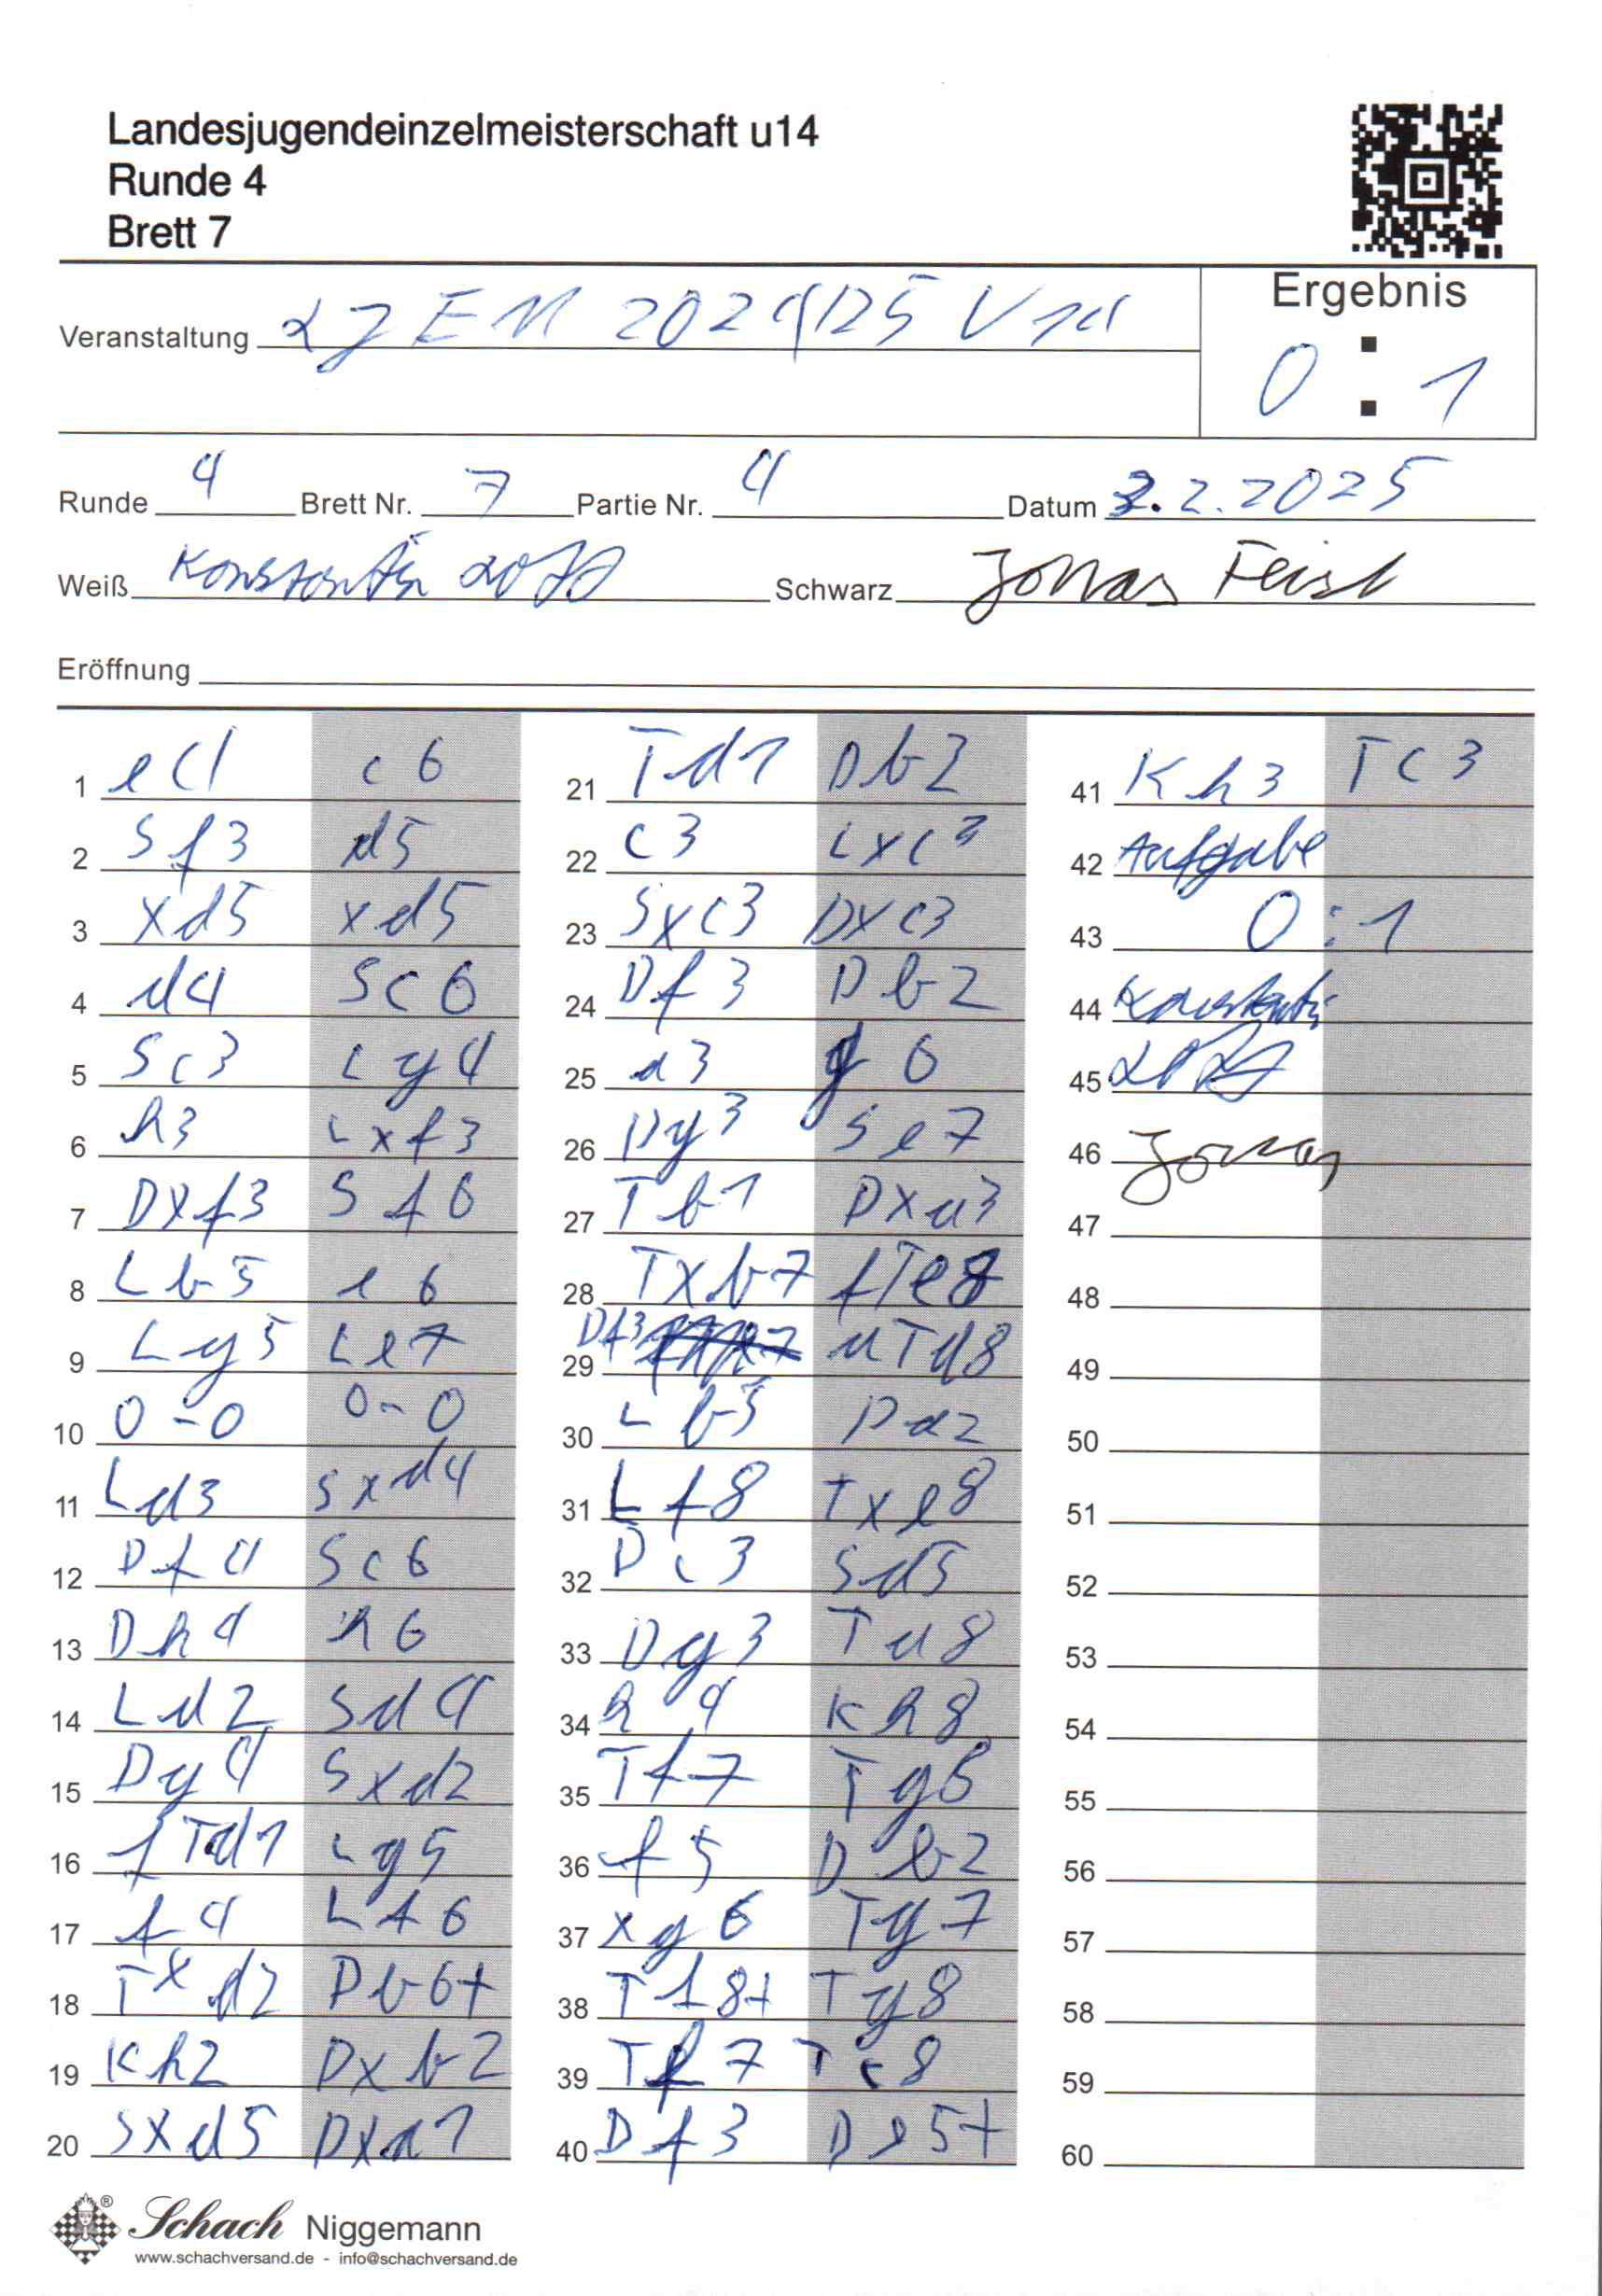 Landesjugendeinzelmeisterschaft u14
Runde 4
Brett 7
Ergebnis
Veranstaltung LJEM 2024/25 U14
0 : 1
Runde 4 Brett Nr. 7 Partie Nr. 4 Datum 2.2.2025
Weiß Konstantin Schwarz Jonas
Eröffnung
1 e4 c6
2 Sf3 d5
3 xd5 xd5
4 d4 Sc6
5 Sc3 Lg4
6 h3 Lxf3
7 Dxf3 Sf6
8 Lb5 e6
9 Lg5 Le7
10 0-0 0-0
11 Ld3 Sxd4
12 Df4 Sc6
13 Dh4 h6
14 Ld2 Sd4
15 Dg4 Sxd2
16 fTd1 Lg5
17 f4 Lf6
18 Txd2 Db6+
19 Kh2 Dxb2
20 Sxd5 Dxa1
21 Td1 Db2
22 c3 Lxc3
23 Sxc3 Dxc3
24 Df3 Db2
25 a3 g6
26 Dg3 Se7
27 Tb1 Dxa3
28 Txb7 fTe8
29 Df3 aTd8
30 Lb5 Da2
31 Lf8 Txe8
32 Dc3 Sd5
33 Dg3 Ta8
34 h4 Kh8
35 Tf7 Tg8
36 f5 Db2
37 xg6 Tg7
38 Tf8+ Tg8
39 Tf7 Tc8
40 Df3 De5+
41 Kh3 Tc3
42 Aufgabe
43 0:1
44 Konstantin
45
46 Jonas
47
48
49
50
51
52
53
54
55
56
57
58
59
60
Schach Niggemann
www.schachversand.de - info@schachversand.de